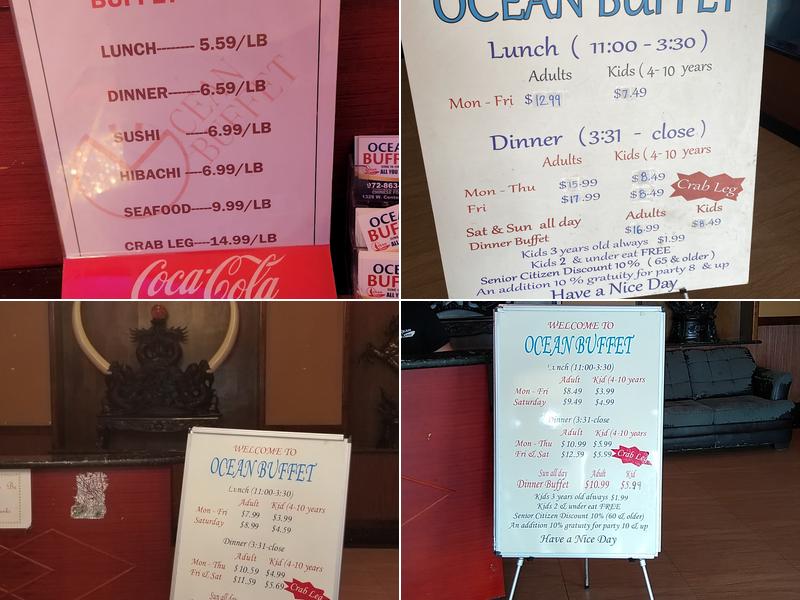 BUFFET
LUNCH-------- 5.59/LB
DINNER-------6.59/LB
SUSHI -----6.99/LB
HIBACHI ----6.99/LB
SEAFOOD----9.99/LB
CRAB LEG----14.99/LB
OCEAN
BUFFET
Coca-Cola
OCEAN
BUFFET
ALL YOU
972-863-
OCEAN BUFFET
Lunch ( 11:00 - 3:30 )
Adults Kids ( 4-10 years
Mon - Fri $12.99 $7.49
Dinner (3:31 - close)
Adults Kids ( 4-10 years
Mon - Thu $15.99 $8.49
Fri $17.99 $8.49
Crab Leg
Sat & Sun all day Adults Kids
Dinner Buffet $16.99 $8.49
Kids 3 years old always $1.99
Kids 2 & under eat FREE
Senior Citizen Discount 10% (65 & older)
An addition 10% gratuity for party 8 & up
Have a Nice Day
WELCOME TO
OCEAN BUFFET
Lunch (11:00-3:30)
Adult Kid (4-10 years
Mon - Fri $7.99 $3.99
Saturday $8.99 $4.59
Dinner (3:31-close
Adult Kid (4-10 years
Mon - Thu $10.59 $4.99
Fri & Sat $11.59 $5.69
Crab Leg
Sun all day
WELCOME TO
OCEAN BUFFET
Lunch (11:00-3:30)
Adult Kid (4-10 years
Mon - Fri $8.49 $3.99
Saturday $9.49 $4.99
Dinner (3:31-close
Adult Kid (4-10 years
Mon - Thu $10.99 $5.99
Fri & Sat $12.59 $5.59
Crab Leg
Sun all day Adult Kid
Dinner Buffet $10.99 $5.99
Kids 3 years old always $1.99
Kids 2 & under eat FREE
Senior Citizen Discount 10% (60 & older)
An addition 10% gratuity for party 10 & up
Have a Nice Day